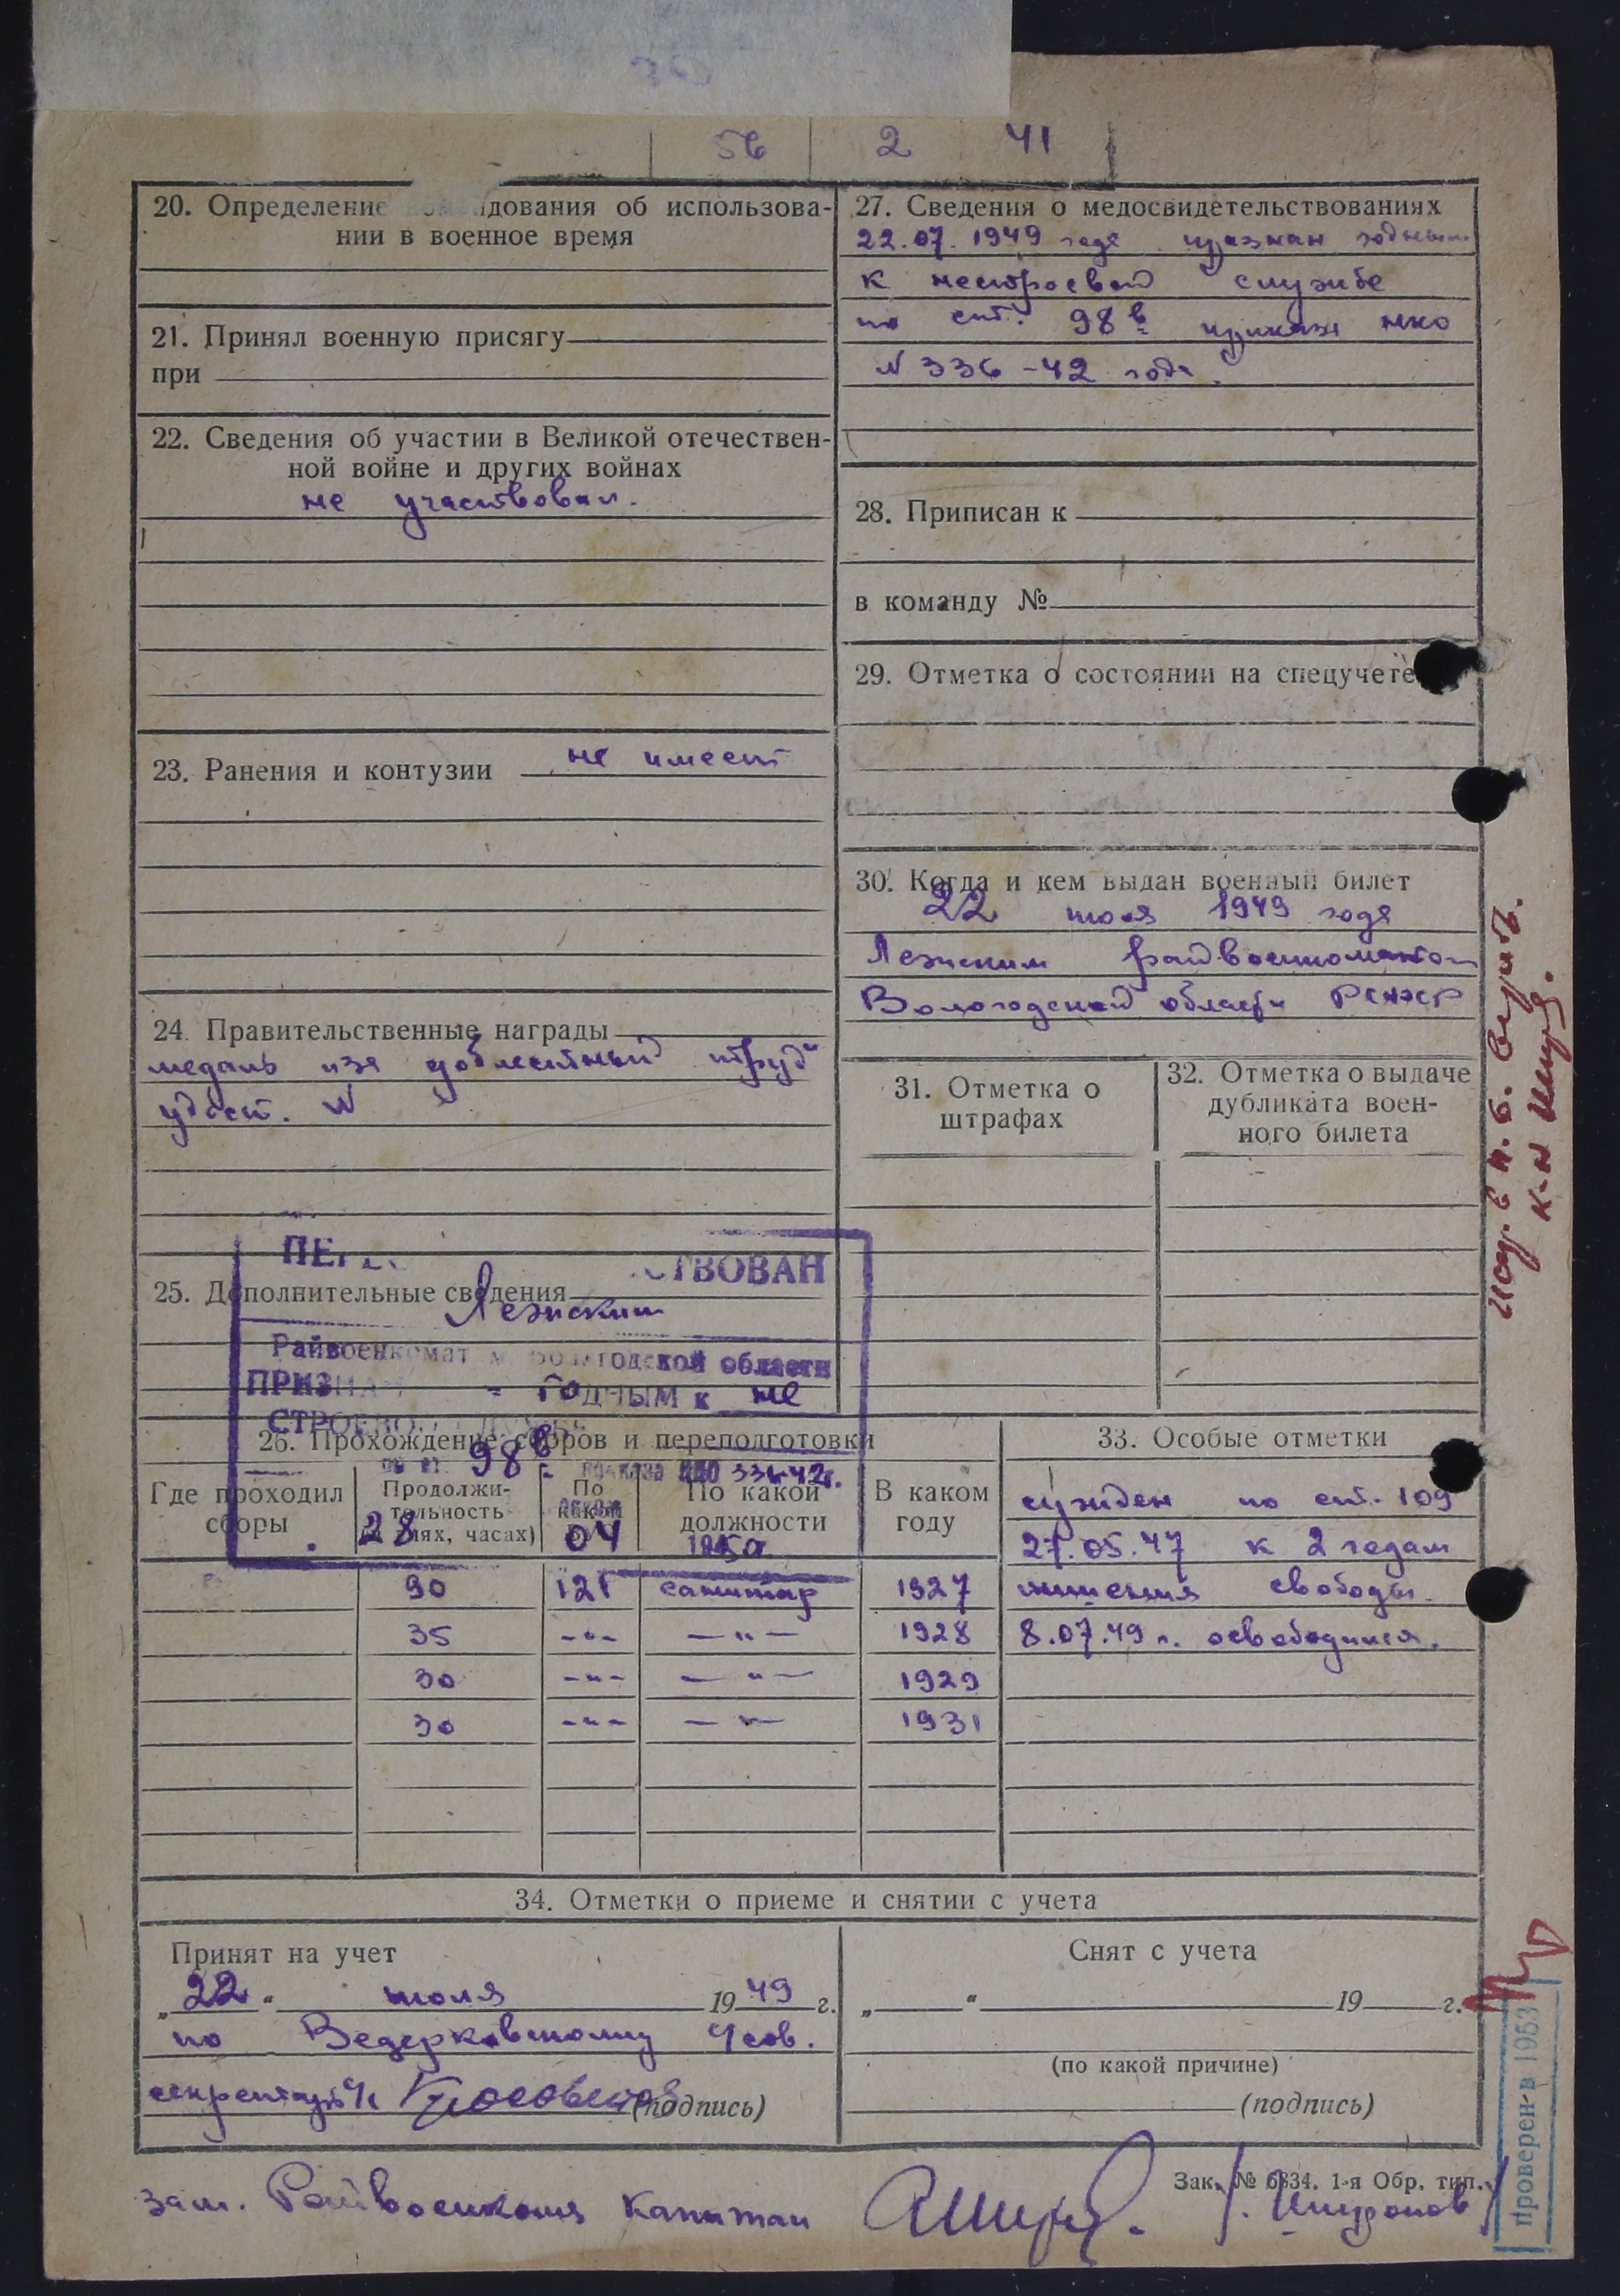 56 2 41
20. Определение командования об использова-
нии в военное время
21. Принял военную присягу
при
22. Сведения об участии в Великой отечествен-
ной войне и других войнах
не участвовал.
23. Ранения и контузии не имеет
24. Правительственные награды
медаль "за доблестный труд"
удост. №
ПЕР СТВОВАН
25. Дополнительные сведения
Лежским
Райвоенкомат Вологодской области
ПРИЗНАН ГОДНЫМ к не
СТРОЕВОЙ СЛУЖБЕ
по ст. 98в приказа НКО 336-42г.
28 04 1950
27. Сведения о медосвидетельствованиях
22.07.1949 года признан годным
к нестроевой службе
по ст. 98 в приказа НКО
№ 336-42 года.
28. Приписан к
в команду №
29. Отметка о состоянии на спецучете
30. Когда и кем выдан военный билет
22 июля 1949 года
Лежским райвоенкоматом
Вологодской области РСФСР
31. Отметка о
штрафах
32. Отметка о выдаче
дубликата воен-
ного билета
26. Прохождение сборов и переподготовки
Где проходил
сборы
Продолжи-
тельность
(в днях, часах)
По
какой
ВУС
По какой
должности
В каком
году
90 121 санитар 1927
35 -"- -"- 1928
30 -"- -"- 1929
30 -"- -"- 1931
33. Особые отметки
сужден по ст. 109
27.05.47 к 2 годам
лишения свободы.
8.07.49 г. освободился.
34. Отметки о приеме и снятии с учета
Принят на учет
„22" июля 1949 г.
по Ведерковскому с/сов.
секретарь с/с
(подпись)
Снят с учета
„ " 19 г.
(по какой причине)
(подпись)
Зак. № 6834. 1-я Обр. тип.
зам. Райвоенкома капитан
Проверен в 1953